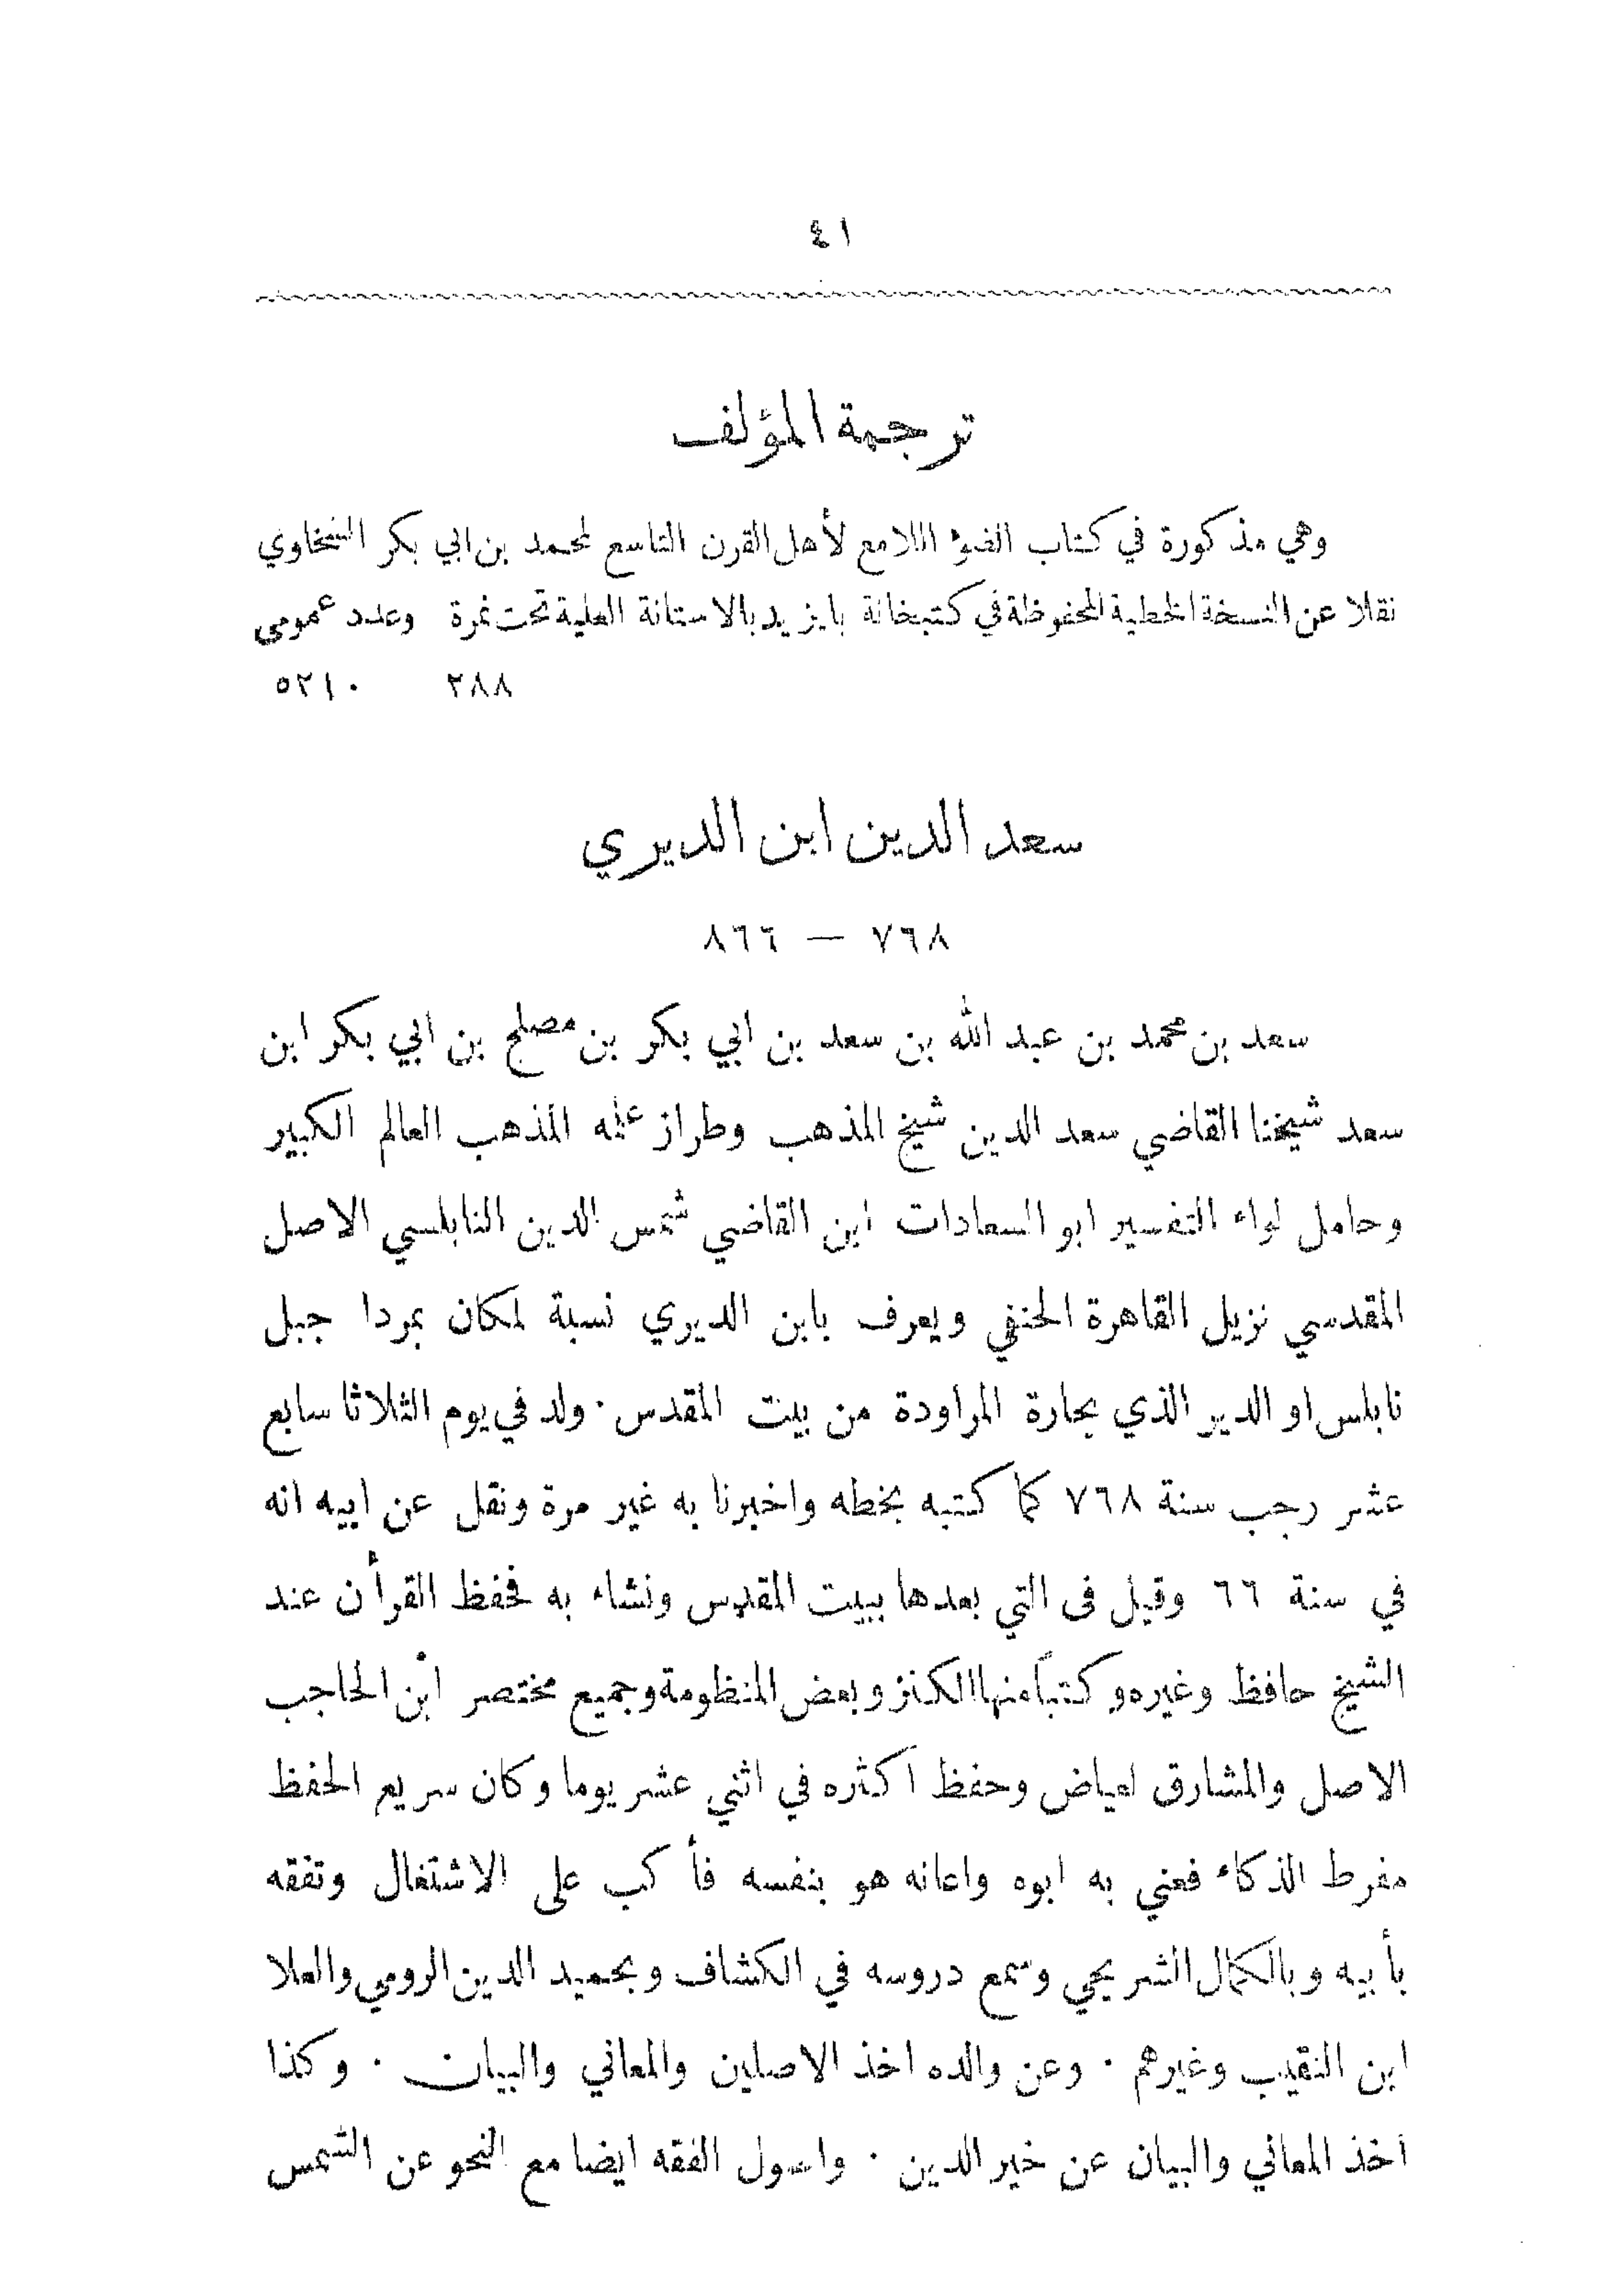 ٤١
ترجمة المؤلف
وهي مذكورة في كتاب الضوء اللامع لأهل القرن التاسع لمحمد بن ابي بكر السخاوي
نقلا عن النسخة الخطية المحفوظة في كتبخانة بايزيد بالاستانة العلية تحت نمرة وعدد عمومى
٢٨٨ ٥٢١٠
سعد الدين ابن الديري
٧٦٨ — ٨٦٦
سعد بن محمد بن عبد الله بن سعد بن ابي بكر بن مصلح بن ابي بكر ابن
سعد شيخنا القاضي سعد الدين شيخ المذهب وطراز علمه المذهب العالم الكبير
وحامل لواء التفسير ابو السعادات ابن القاضي شمس الدين النابلسي الاصل
المقدسي نزيل القاهرة الحنفي ويعرف بابن الديري نسبة لمكان بمردا جبل
نابلس او الدير الذي بحارة المراودة من بيت المقدس · ولد في يوم الثلاثا سابع
عشر رجب سنة ٧٦٨ كما كتبه بخطه واخبرنا به غير مرة ونقل عن ابيه انه
في سنة ٦٦ وقيل فى التي بعدها ببيت المقدس ونشاء به فحفظ القرأن عند
الشيخ حافظ وغيره وكتباً منها الكنز وبعض المنظومة وجميع مختصر ابن الحاجب
الاصل والمشارق لعياض وحفظ اكثره في اثني عشر يوما وكان سريع الحفظ
مفرط الذكاء فعني به ابوه واعانه هو بنفسه فأكب على الاشتغال وتفقه
بأبيه وبالكمال الشريحي وسمع دروسه في الكشاف وبحميد الدين الرومي والعلا
ابن النقيب وغيرهم · وعن والده اخذ الاصلين والمعاني والبيان · وكذا
اخذ المعاني والبيان عن خير الدين · واصول الفقه ايضا مع النحو عن الشمس